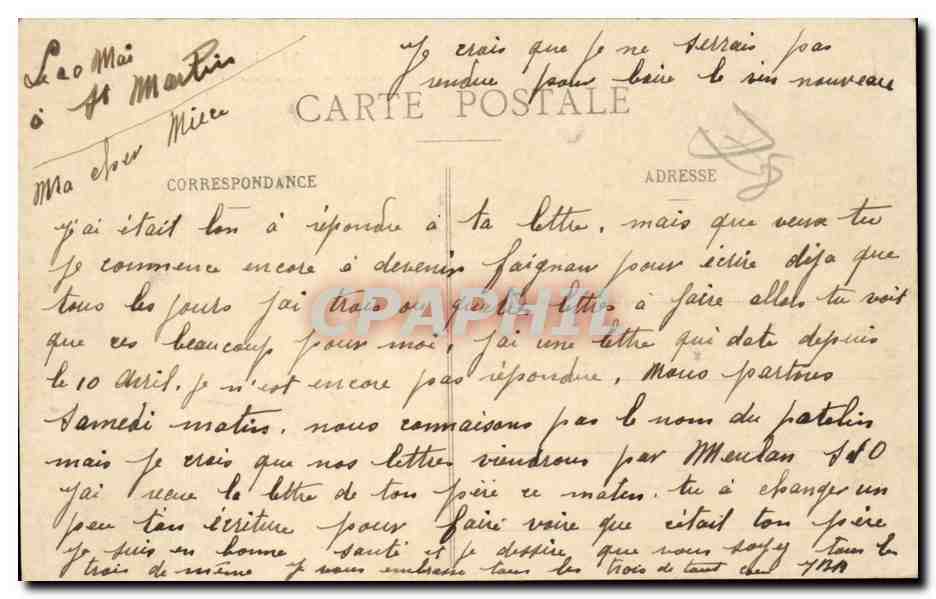 Le 20 Mai
à St Martin
Ma cher Mièce
Je crois que je ne serrais pas
rendue pour boire le vin nouveau
CARTE POSTALE
CORRESPONDANCE
ADRESSE
J'ai était lon à répondre à ta lettre, mais que veux tu
je commence encore à devenir faignan pour écrire déja que
tous les jours j'ai trois ou quatres lettres à faire allors tu voit
que ces beaucoup pour moi, j'ai une lettre qui date depuis
le 10 Avril, je n'est encore pas répondue, nous partons
Samedi matin, nous connaisons pas le nom du patelin
mais je crois que nos lettres viendrons par Meulan S et O
J'ai recue la lettre de ton père ce matin, tu à changer un
peu ton écriture pour faire voire que cétait ton père
Je suis en bonne santé et je dessire que vous soyez tous les
trois de même je vous embrasse tous les trois de tout coeur
CPAPHIL